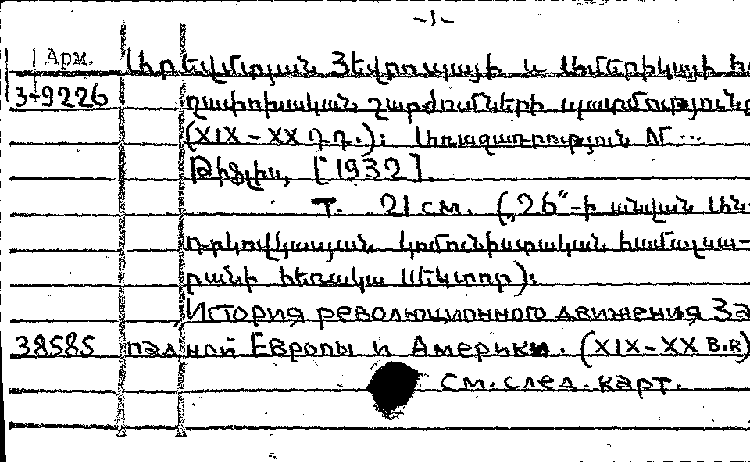 -1-
Арм. Արեվմտյան Յեվրոպայի և Ամերիկայի հե
3-9226 ղափոխական շարժումների պատմություն
(XIX-XX դ.դ.): Առաջադրություն №...
Թիֆլիս, [1932].
т. 21 см. („26"-ի անվան Ան-
դրկովկասյան կոմունիստական համալսա-
րանի հեռակա սեկտոր):
История революционного движения За
38585 падной Европы и Америки. (XIX-XX в.в)
См. след. карт.